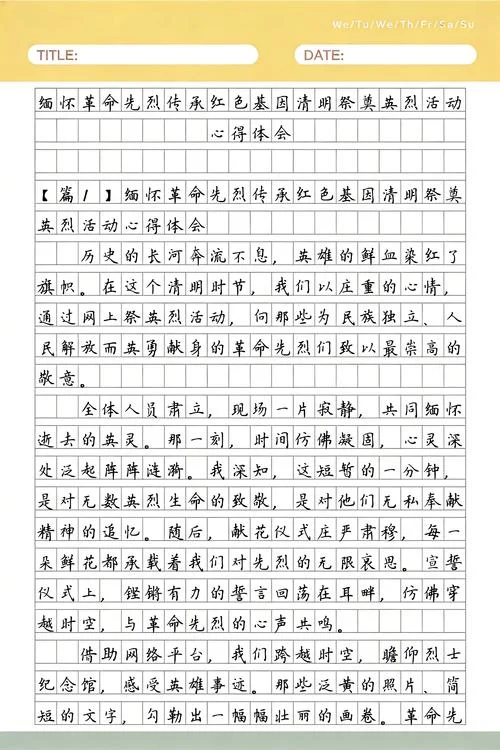 We/Tu/We/Th/Fr/Sa/Su
TITLE:
DATE:
缅怀革命先烈传承红色基因清明祭奠英烈活动
心得体会
【篇1】缅怀革命先烈传承红色基因清明祭奠
英烈活动心得体会
历史的长河奔流不息，英雄的鲜血染红了
旗帜。在这个清明时节，我们以庄重的心情，
通过网上祭英烈活动，向那些为民族独立、人
民解放而英勇献身的革命先烈们致以最崇高的
敬意。
全体人员肃立，现场一片寂静，共同缅怀
逝去的英灵。那一刻，时间仿佛凝固，心灵深
处泛起阵阵涟漪。我深知，这短暂的一分钟，
是对无数英烈生命的致敬，是对他们无私奉献
精神的追忆。随后，献花仪式庄严肃穆，每一
朵鲜花都承载着我们对先烈的无限哀思。宣誓
仪式上，铿锵有力的誓言回荡在耳畔，仿佛穿
越时空，与革命先烈的心声共鸣。
借助网络平台，我们跨越时空，瞻仰烈士
纪念馆，感受英雄事迹。那些泛黄的照片、简
短的文字，勾勒出一幅幅壮丽的画卷。革命先